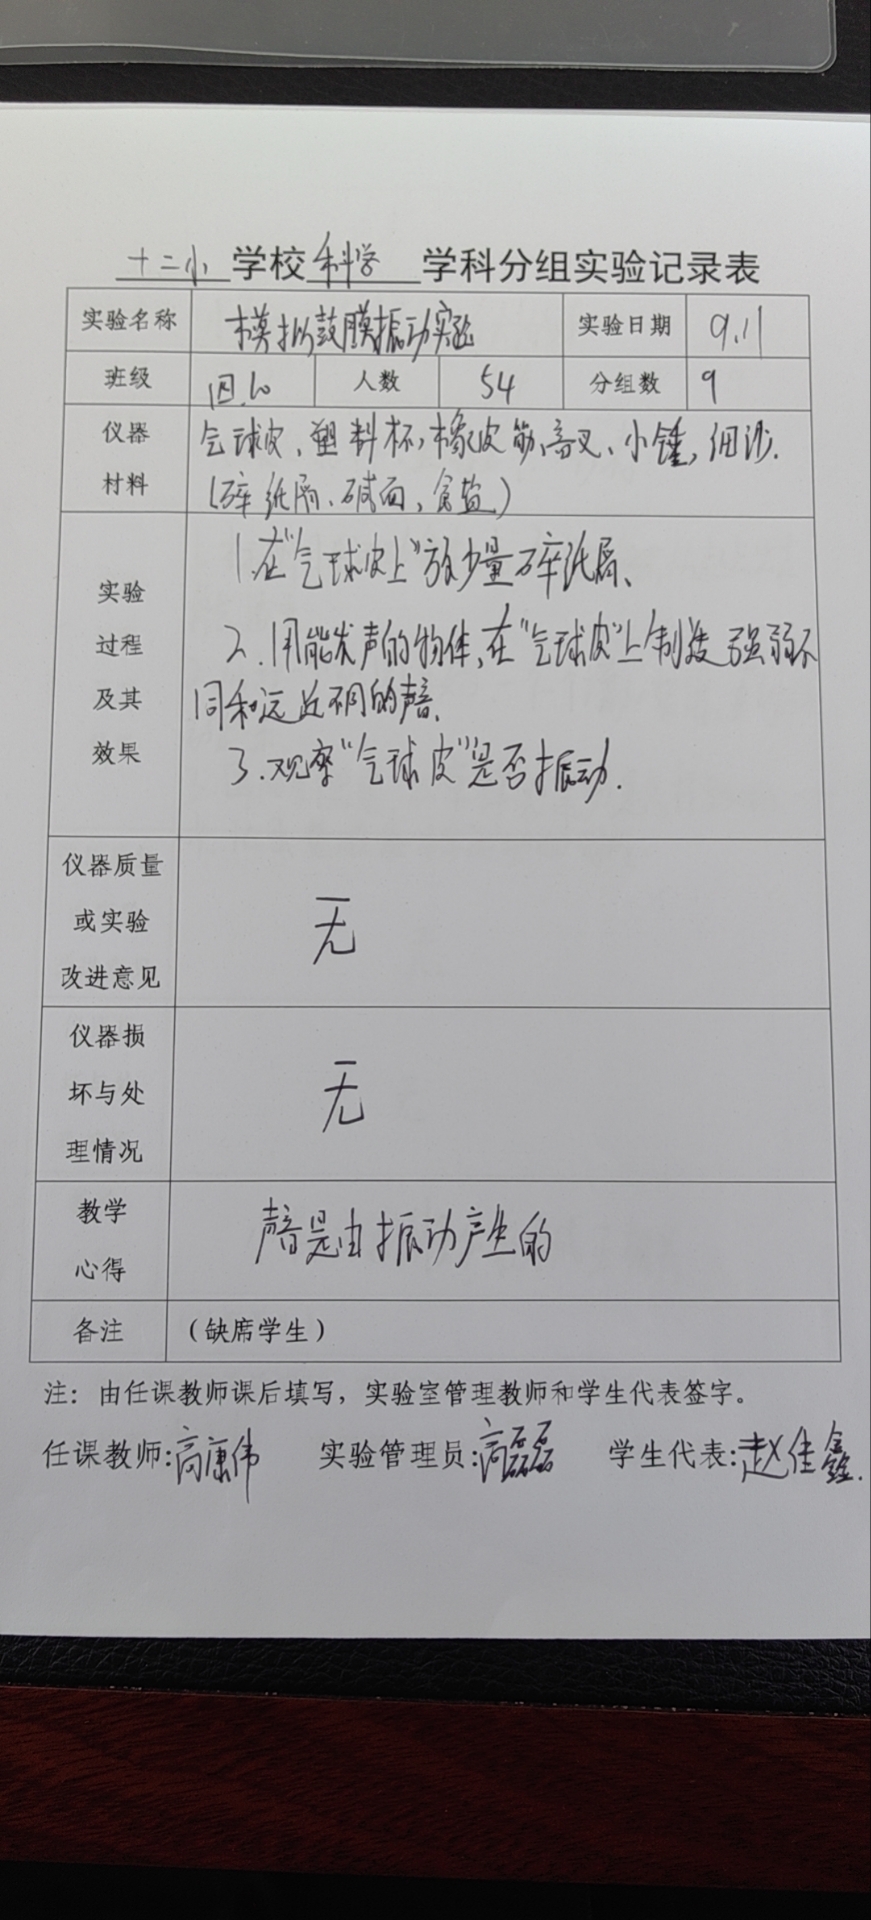 十二小学校科学学科分组实验记录表
实验名称 模拟鼓膜振动实验 实验日期 9.11
班级 四.10 人数 54 分组数 9
仪器材料 气球皮、塑料杯,橡皮筋、音叉、小锤,细沙.
(碎纸屑、碱面,食盐)
实验过程及其效果 1.在“气球皮上”放少量碎纸屑、
2.用能发声的物体,在“气球皮”上制造强弱不
同和远近不同的声音.
3.观察“气球皮”是否振动.
仪器质量或实验改进意见 无
仪器损坏与处理情况 无
教学心得 声音是由振动产生的
备注 (缺席学生)
注：由任课教师课后填写，实验室管理教师和学生代表签字。
任课教师:高康伟 实验管理员:高磊磊 学生代表:赵佳鑫.